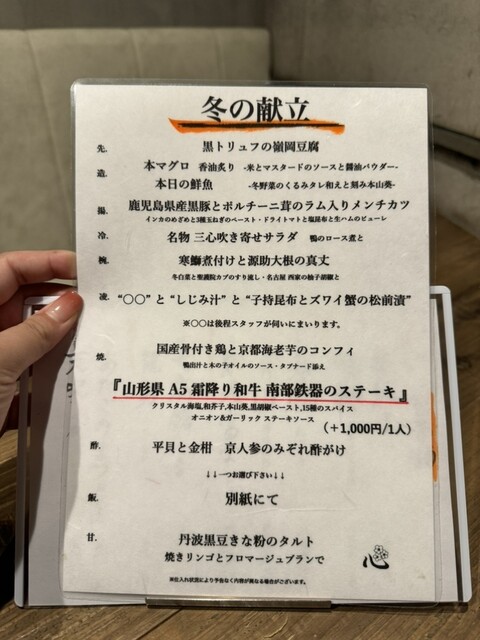 冬の献立
先. 黒トリュフの嶺岡豆腐
造. 本マグロ 香油炙り -米とマスタードのソースと醤油パウダー-
本日の鮮魚 -冬野菜のくるみタレ和えと刻み本山葵-
揚. 鹿児島県産黒豚とポルチーニ茸のラム入りメンチカツ
インカのめざめと3種玉ねぎのペースト・ドライトマトと塩昆布と生ハムのピューレ
冷. 名物 三心吹き寄せサラダ 鴨のロース煮と
椀. 寒鰤煮付けと源助大根の真丈
冬白菜と聖護院カブのすり流し・名古屋 西家の柚子胡椒と
凌. “〇〇” と “しじみ汁” と “子持昆布とズワイ蟹の松前漬”
※〇〇は後程スタッフが伺いにまいります。
焼. 国産骨付き鶏と京都海老芋のコンフィ
鴨出汁と木の子オイルのソース・タプナード添え
『山形県 A5 霜降り和牛 南部鉄器のステーキ』
クリスタル海塩,和芥子,本山葵,黒胡椒ペースト,15種のスパイス
オニオン&ガーリック ステーキソース
(+1,000円/1人)
酢. 平貝と金柑 京人参のみぞれ酢がけ
↓↓一つお選び下さい↓↓
飯. 別紙にて
甘. 丹波黒豆きな粉のタルト
焼きリンゴとフロマージュブランで
心
※仕入れ状況により予告なく内容が異なる場合がございます。